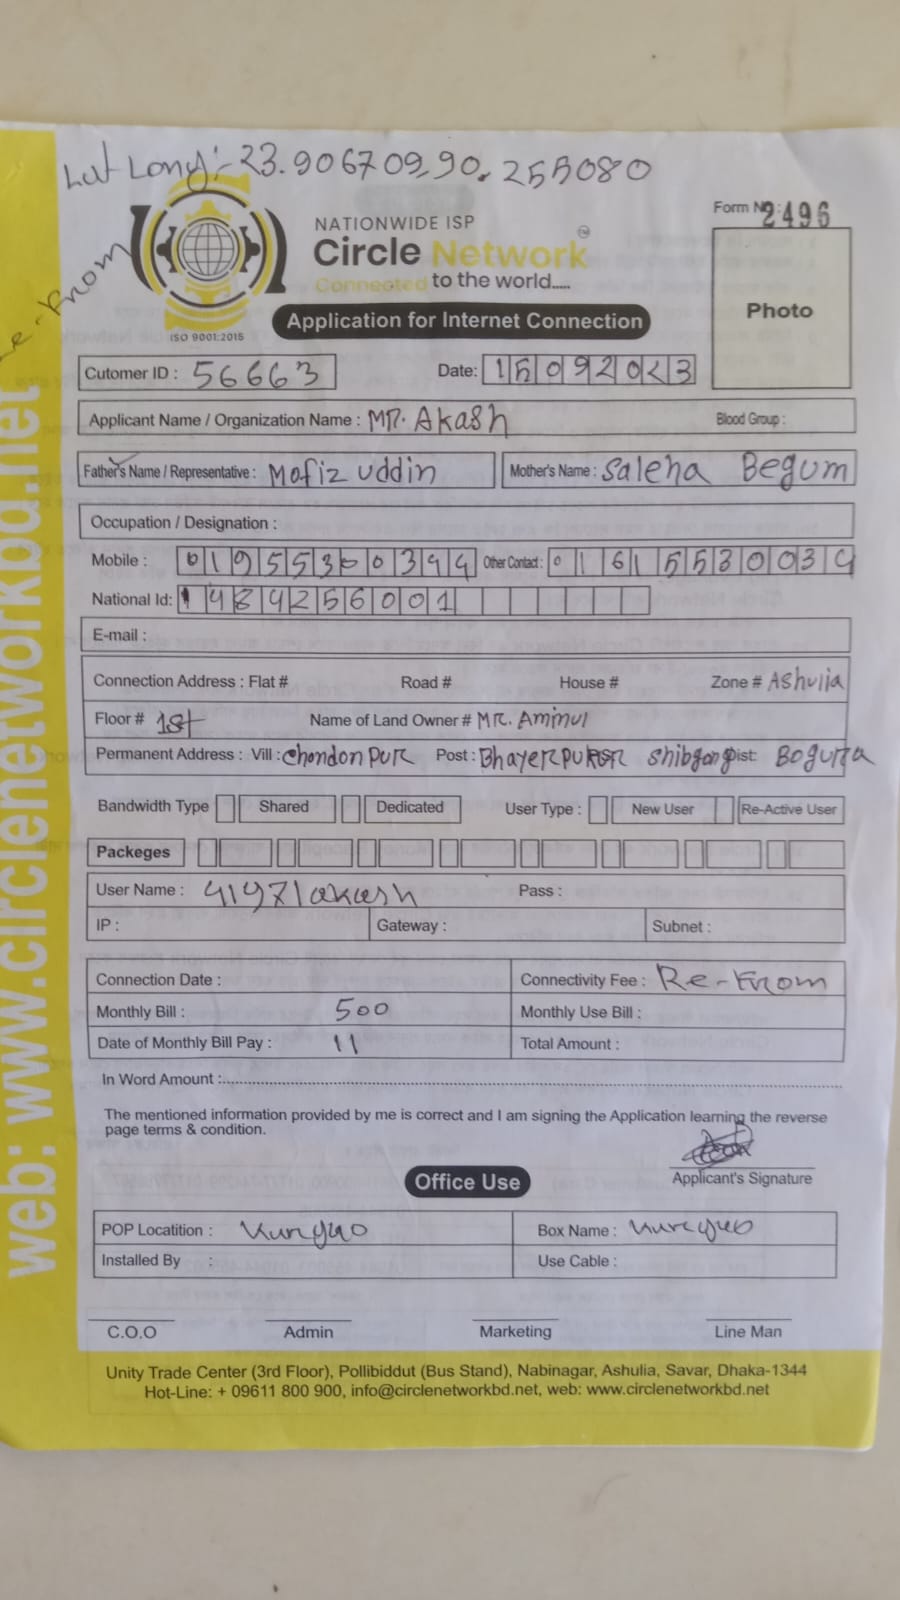 Lat Long:- 23.906709,90.255080
Re-From
NATIONWIDE ISP
Circle Network TM
Connected to the world.....
ISO 9001:2015
Form No: 2496
Photo
Application for Internet Connection
Cutomer ID : 56663 Date: 15092023
Applicant Name / Organization Name : MR. Akash Blood Group :
Father's Name / Representative : Mofiz Uddin Mother's Name : Saleha Begum
Occupation / Designation :
Mobile : 01955300344 Other Contact : 01615530034
National Id: 1484256001
E-mail :
Connection Address : Flat # Road # House # Zone # Ashulia
Floor # 1st Name of Land Owner # MR. Aminul
Permanent Address : Vill : Chondon PUR Post : Shibgong Dist: BOGURA
Bandwidth Type Shared Dedicated User Type : New User Re-Active User
Packeges
User Name : 41971akash Pass :
IP : Gateway : Subnet :
Connection Date : Connectivity Fee : Re-From
Monthly Bill : 500 Monthly Use Bill :
Date of Monthly Bill Pay : 11 Total Amount :
In Word Amount :
The mentioned information provided by me is correct and I am signing the Application learning the reverse
page terms & condition.
Applicant's Signature
Office Use
POP Locatition : Box Name :
Installed By : Use Cable :
C.O.O Admin Marketing Line Man
Unity Trade Center (3rd Floor), Pollibiddut (Bus Stand), Nabinagar, Ashulia, Savar, Dhaka-1344
Hot-Line: + 09611 800 900, info@circlenetworkbd.net, web: www.circlenetworkbd.net
web: www.circlenetworkbd.net